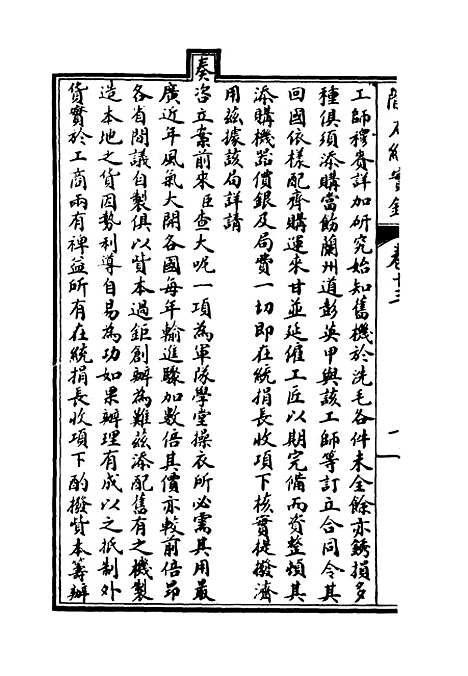 工師穆賚詳加研究始知舊機於洗毛各件未全餘亦銹損多
種俱須添購當飭蘭州道彭英甲與該工師等訂立合同令其
回國依樣配齊購運來甘並延僱工匠以期完備而資整頓其
添購機器價銀及局費一切即在統捐長收項下核實提撥濟
用茲據該局詳請
奏咨立案前來臣查大呢一項為軍隊學堂操衣所必需其用最
廣近年風氣大開各國每年輸進驟加數倍其價亦較前倍昂
各省間議自製俱以貲本過鉅創辦為難茲添配舊有之機製
造本地之貨因勢利導自易為功如果辦理有成以之抵制外
貨實於工商兩有裨益所有在統捐長收項下酌撥貲本籌辦
卷十三